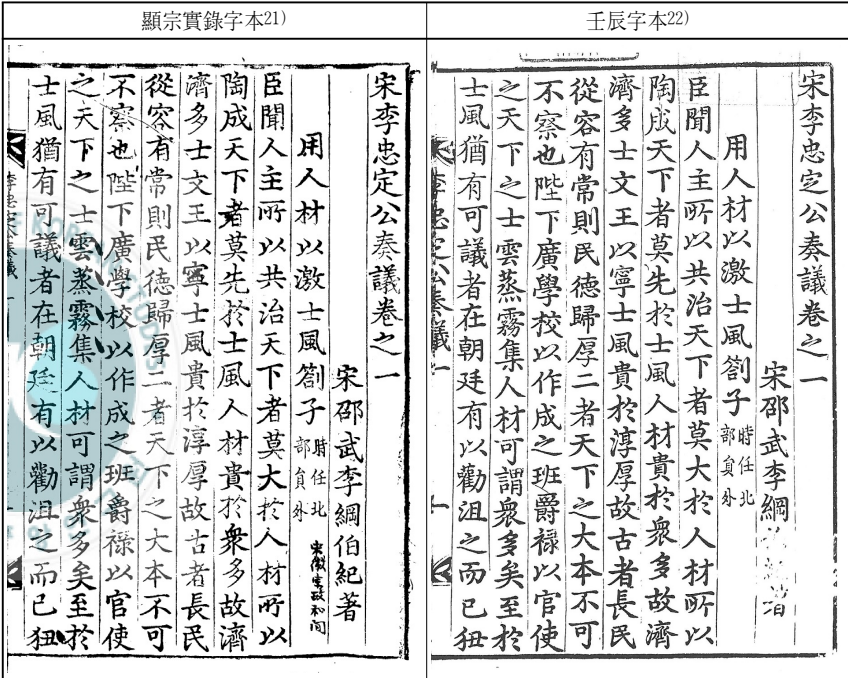 顯宗實錄字本21)
壬辰字本22)
宋李忠定公奏議卷之一
宋邵武李綱伯紀著
用人材以激士風劄子 時任北部員外 宋徽宗政和間
臣聞人主所以共治天下者莫大於人材所以
陶成天下者莫先於士風人材貴於衆多故濟
濟多士文王以寧士風貴於淳厚故古者長民
從容有常則民德歸厚二者天下之大本不可
不察也陛下廣學校以作成之班爵祿以官使
之天下之士雲蒸霧集人材可謂衆多矣至於
士風猶有可議者在朝廷有以勸沮之而已狃
李忠定公奏議 一
宋李忠定公奏議卷之一
宋邵武李綱
用人材以激士風劄子 時任北部員外
臣聞人主所以共治天下者莫大於人材所以
陶成天下者莫先於士風人材貴於衆多故濟
濟多士文王以寧士風貴於淳厚故古者長民
從容有常則民德歸厚二者天下之大本不可
不察也陛下廣學校以作成之班爵祿以官使
之天下之士雲蒸霧集人材可謂衆多矣至於
士風猶有可議者在朝廷有以勸沮之而已狃
李忠定公奏議一